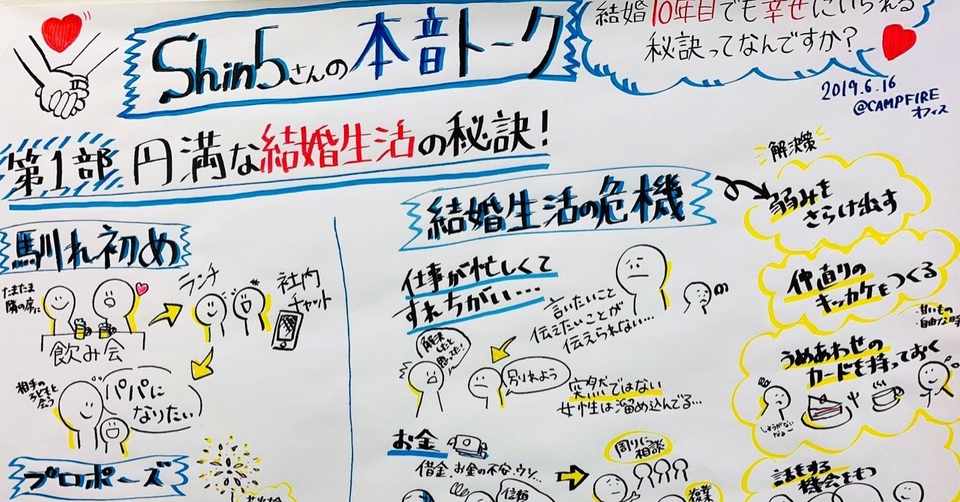 Shin5さんの本音トーク
結婚10年目でも幸せにいられる
秘訣ってなんですか?
2019.6.16
@CAMPFIRE
オフィス
第1部 円満な結婚生活の秘訣!
馴れ初め
たまたま
隣の席に
飲み会
ランチ
社内
チャット
相手の
子どもと
会う
パパに
なりたい
プロポーズ
結婚生活の危機
仕事が忙しくて
すれちがい…
言いたいこと
伝えたいことが
伝えられない…
解決
したと
思ってた!
別れよう
突然ではない
女性は溜め込んでる…
お金
借金、お金の不安、ウソ…
信頼
周りに
相談
解決策
弱みを
さらけ出す
仲直りの
キッカケをつくる
・甘いもの
・自由な時
うめあわせの
カードを持っておく
しょうがない
なぁ〜
話をする
機会をもつ